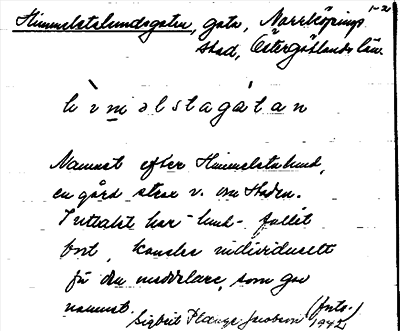 1-2
Himmelstalundsgatan, gata, Norrköpings
stad, Östergötlands län.
hìm̲əlstagátan
Namnet efter Himmelstalund,
en gård strax v. om staden.
I uttalet har -lund- fallit
bort, kanske individuellt
för den meddelare, som gav
namnet. (forts.)
Sigbrit Plænge Jacobson 1942